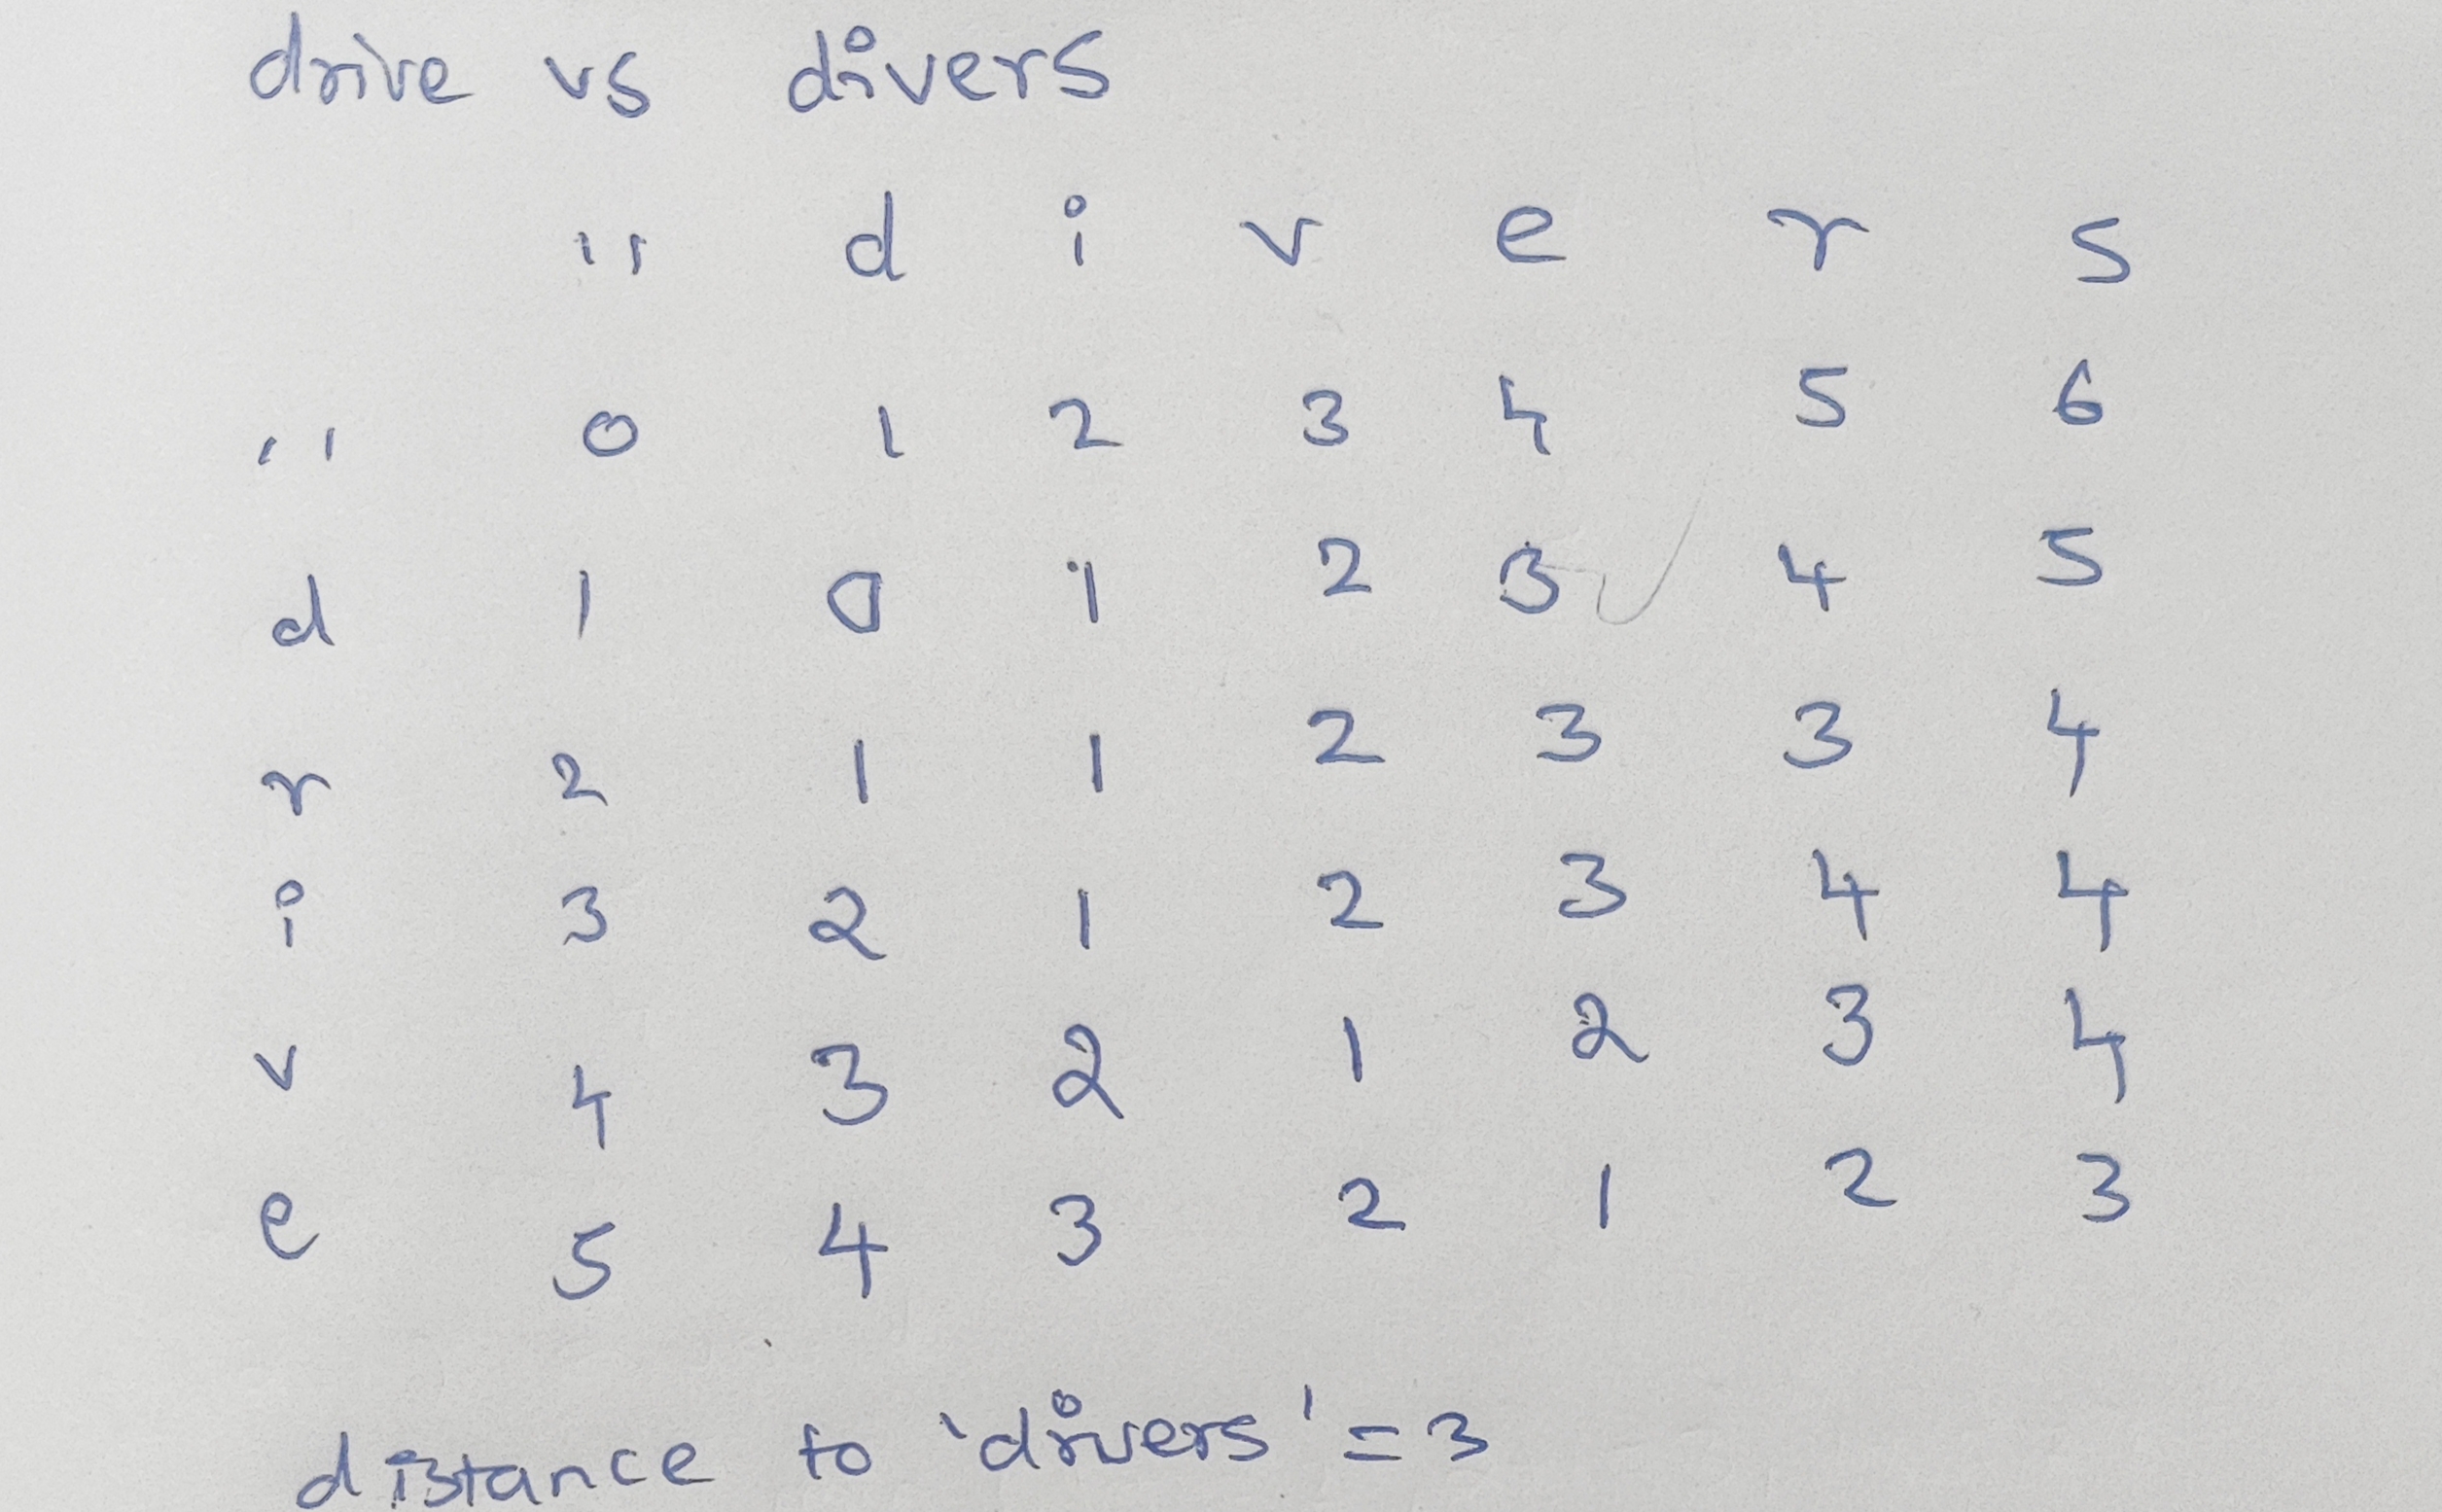 drive vs divers
" d i v e r s
" 0 1 2 3 4 5 6
d 1 0 1 2 3 4 5
r 2 1 1 2 3 3 4
i 3 2 1 2 3 4 4
v 4 3 2 1 2 3 4
e 5 4 3 2 1 2 3
distance to 'divers' = 3